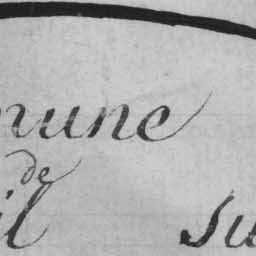 mune
de
il su